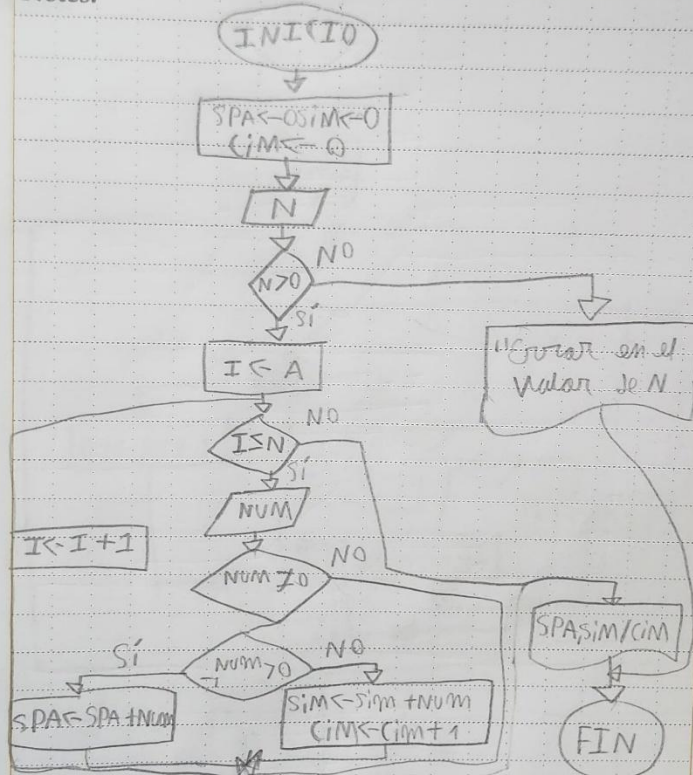 INICIO
SPA<-0 SiM<-0
CiM<-0
N
N>0
NO
SÍ
"Error en el
valor de N
I<-A
I≤N
NO
SÍ
NUM
I<-I+1
NUM≠0
NO
Sí
NUM>0
-1
NO
SPA<-SPA+Num
SiM<-Sim+Num
CiM<-Cim+1
SPA,SiM/CiM
FIN